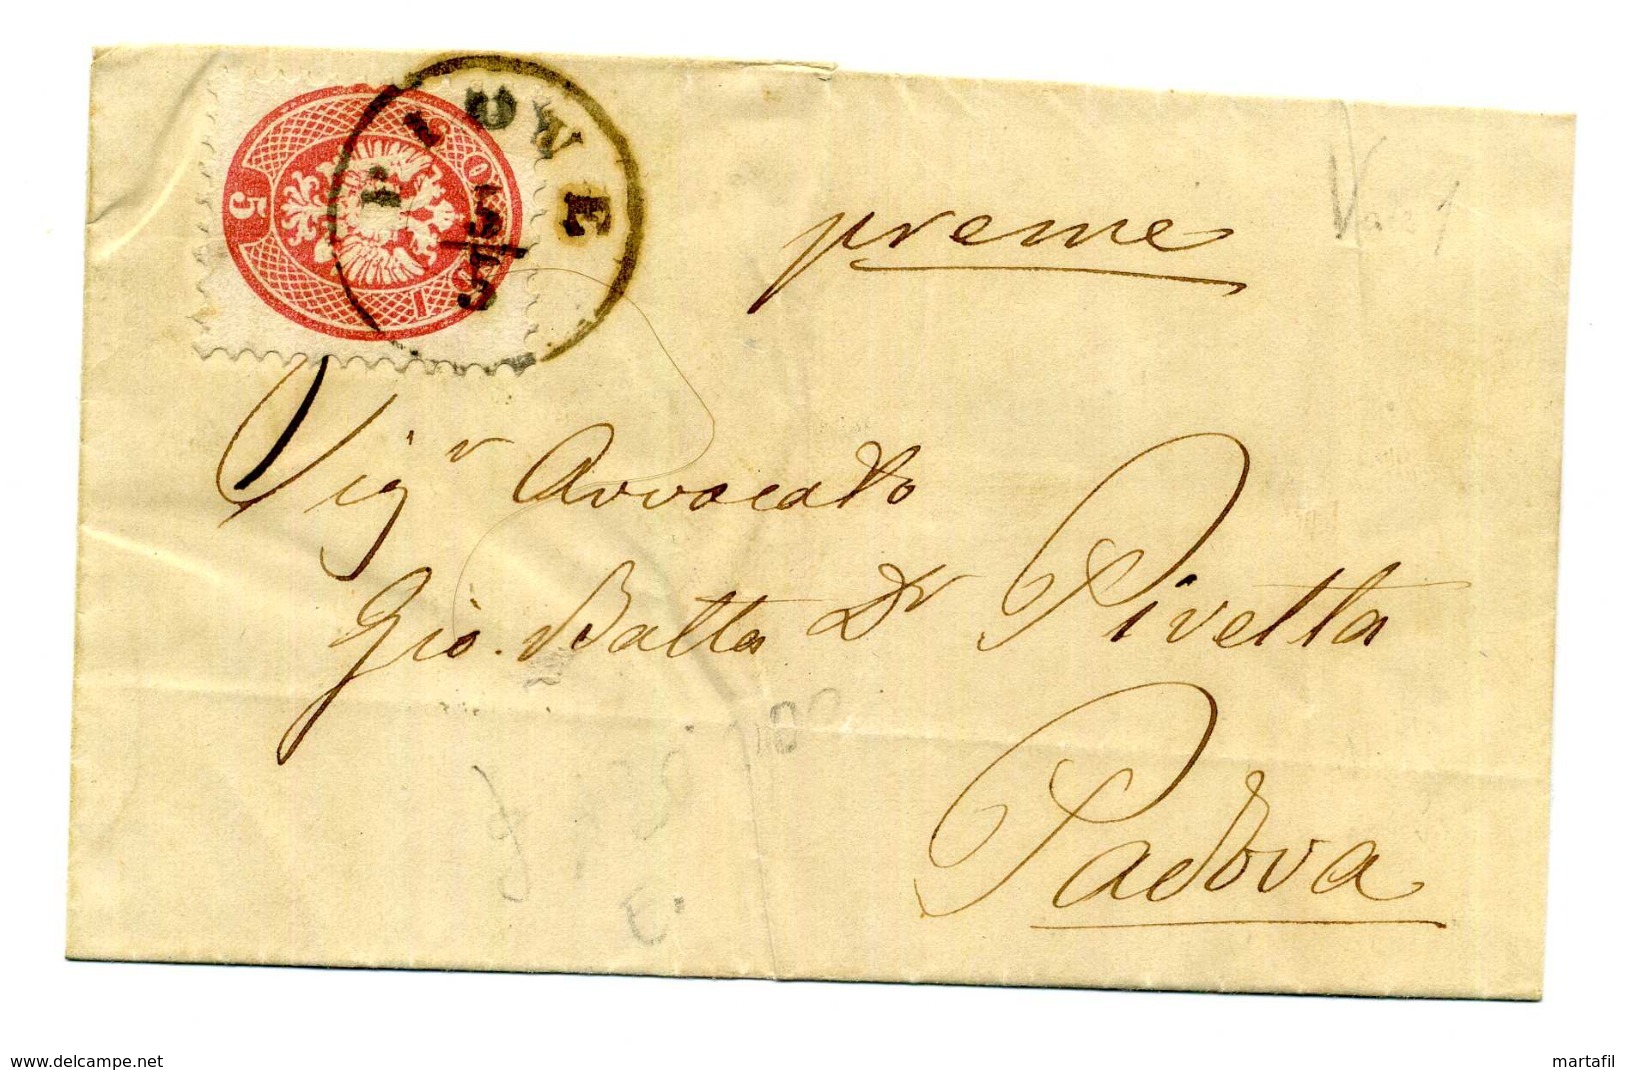 PIOVE
5
SOLDI
5
preme
Sigr Avvocato
Gio. Batta Dr Pivetta
Padova
www.delcampe.net
martafil